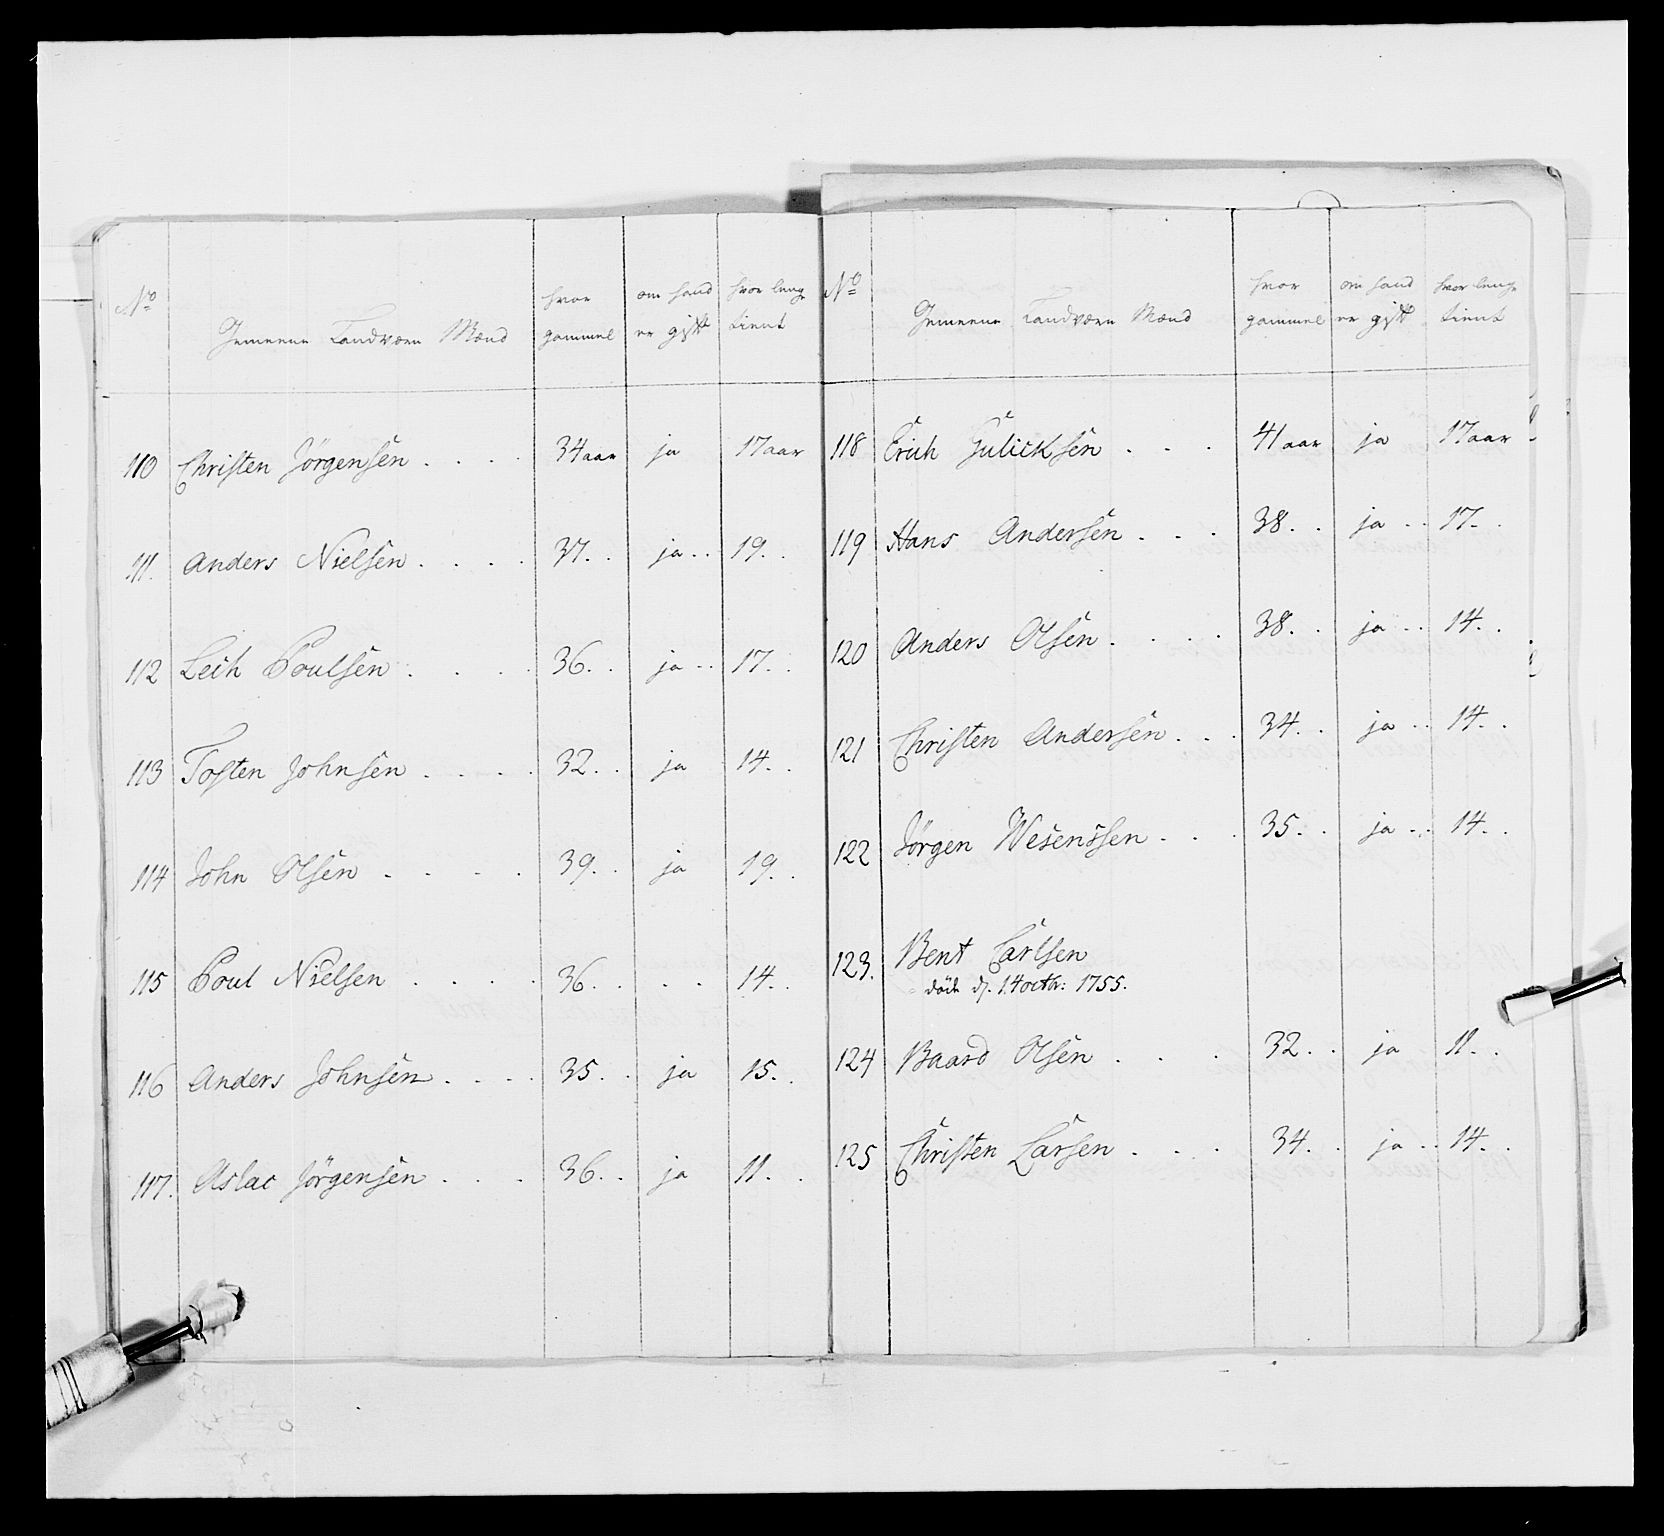 No
Gemeene Landværn Mænd
hvor gammel
om hand er gift
hvor lenge tient
110 Christen Jörgensen . . . . 34 aar ja 17 aar
111. Anders Nielsen . . . . 37. . ja . . 19. .
112 Leih Poulsen . . . . 36. . ja . . 17. .
113 Tosten Johnsen . . . . 32. . ja 14. .
114 John Olsen . . . . 39. . ja 19. .
115 Poul Nielsen . . . . 36. . . . 14. .
116 Anders Johnsen . . . . 35. . ja 15. .
117. Aslac Jörgensen . . . 36. . ja 11. .
No
Gemeene Landværn Mænd
hvor gammel
om hand er gift
hvor lenge tient
118 Erich Gulicksen . . . 41 aar ja 17 aar
119 Hans Andersen . . . 38. . ja . . 17. .
120 Anders Olsen . . . . 38. . ja . . 14. .
121 Christen Andersen . . . 34. . ja . . 14. .
122 Jörgen Wesenssen . . . 35. . ja . . 14. .
123. Bent Carlsen
döde d. 14 octbr: 1755.
124 Baard Olsen . . . 32. . ja 11. .
125 Christen Larsen . . . . 34. . ja . . 14. .